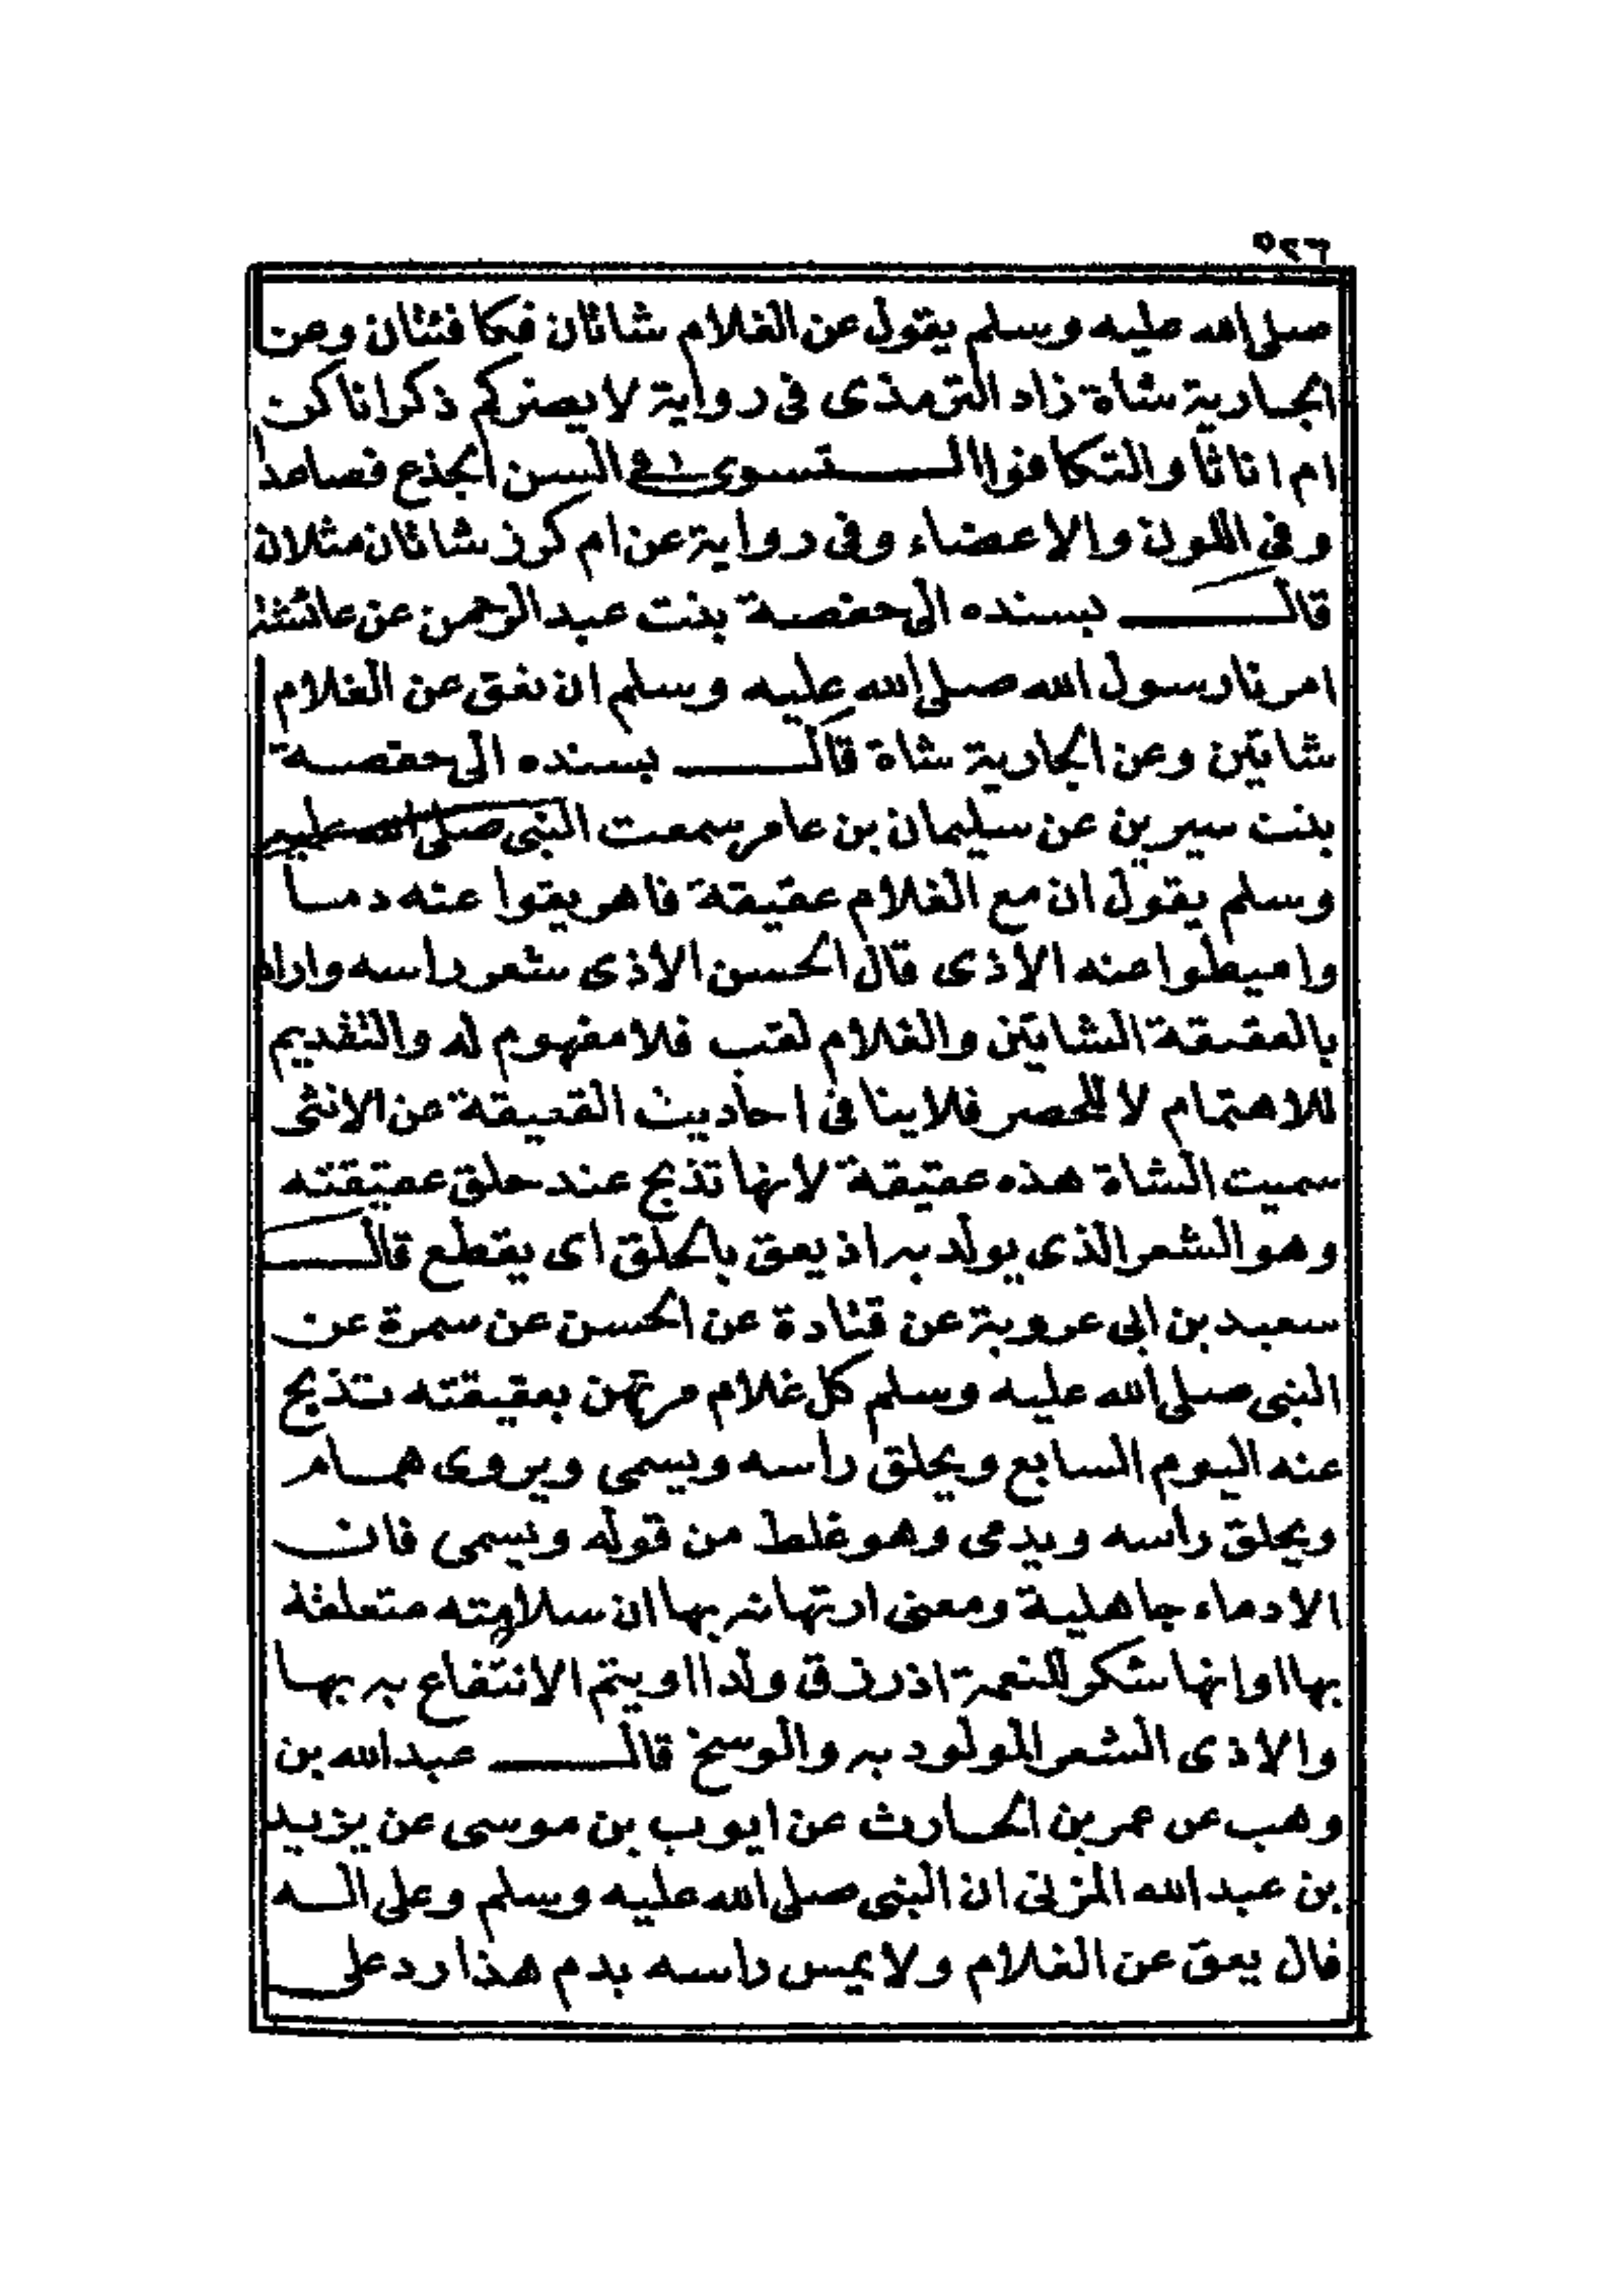 ٥٢٦
صلى الله عليه وسلم يقول عن الغلام شاتان فكافئتان وعن
الجارية شاة زاد الترمذى فى رواية لا يضركم ذكرانا كن
ام اناثا والتكافوا الستوى فى السن الجذع فصاعدا
وفى اللون والاعضاء وفى رواية عن ام كرز شاتان مثلان
قال بسنده الى حفصة بنت عبد الرحمن عن عائشة
امرنا رسول الله صلى الله عليه وسلم ان نعق عن الغلام
شاتين وعن الجارية شاة قال بسنده الى حفصة
بنت سيرين عن سليمان بن عامر سمعت النبى صلى الله عليه
وسلم يقول ان مع الغلام عقيقة فاهريقوا عنه دما
واميطوا عنه الاذى قال الحسن الاذى شعر راسه واراد
بالعقيقة الشاتين والغلام لقب فلا مفهوم له والتقديم
للاهتمام لا للحصر فلا ينافى احاديث العقيقة عن الانثى
سميت الشاة هذه عقيقة لانها تذبح عند حلق عقيقته
وهو الشعر الذى يولد به اذ يعق بالحلق اى يقطع قال
سعيد بن ابى عروبة عن قتادة عن الحسن عن سمرة عن
النبى صلى الله عليه وسلم كل غلام مرتهن بعقيقته تذبح
عنه اليوم السابع ويحلق راسه ويسمى ويروى همام
ويحلق راسه ويدمى وهو غلط من قوله ويسمى فان
الادماء جاهلية ومعنى ارتهانه بها ان سلامته متعلقة
بها او انها شكر للنعمة اذ رزق ولدا او يتم الانتفاع به بها
والاذى الشعر المولود به والوسخ قال عبد الله بن
وهب عن عمر بن الحارث عن ايوب بن موسى عن يزيد
بن عبد الله المزنى ان النبى صلى الله عليه وسلم وعلى اله
قال يعق عن الغلام ولا يمس راسه بدم هذا رد على